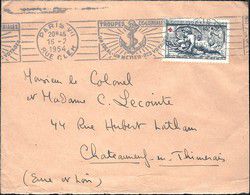 PARIS VII
20H45
16-2
1954
RUE CLER
TROUPES COLONIALES
Monsieur le Colonel
et Madame C. Lecointe
44 Rue Hubert Latham
Chateauneuf-en-Thimerais
(Eure et Loir)